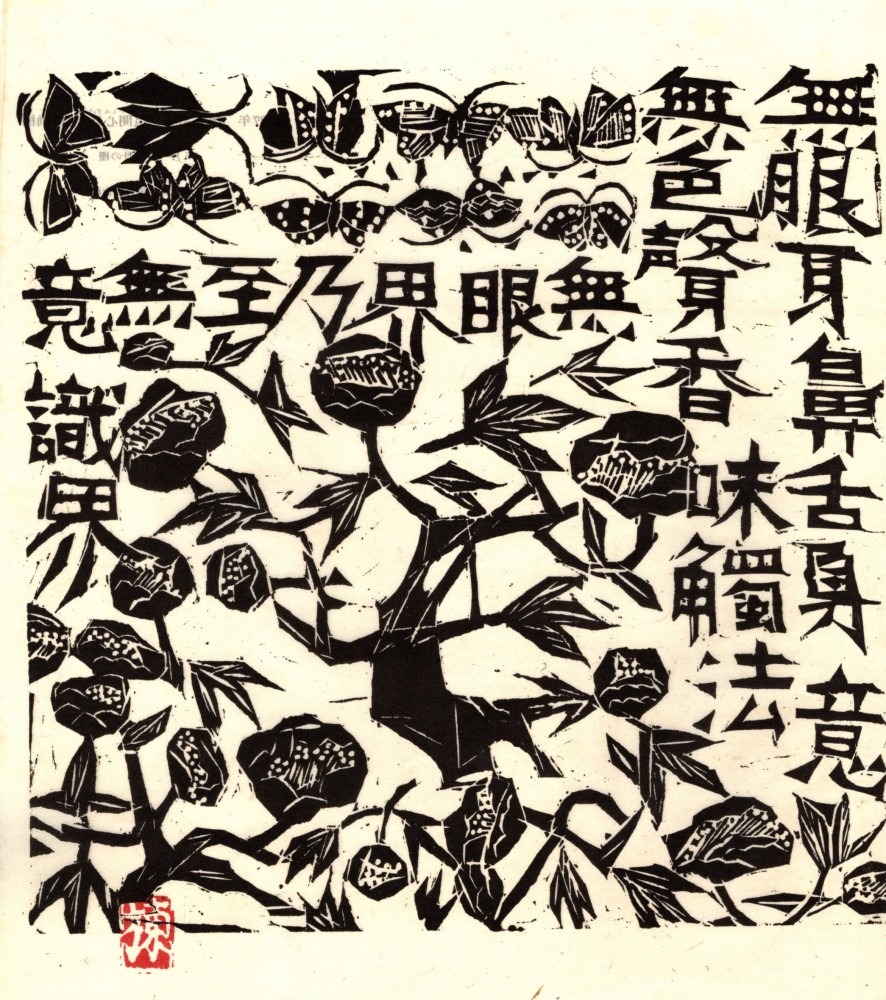 無眼耳鼻舌身意
無色聲香味觸法
無眼界乃至無意
識界